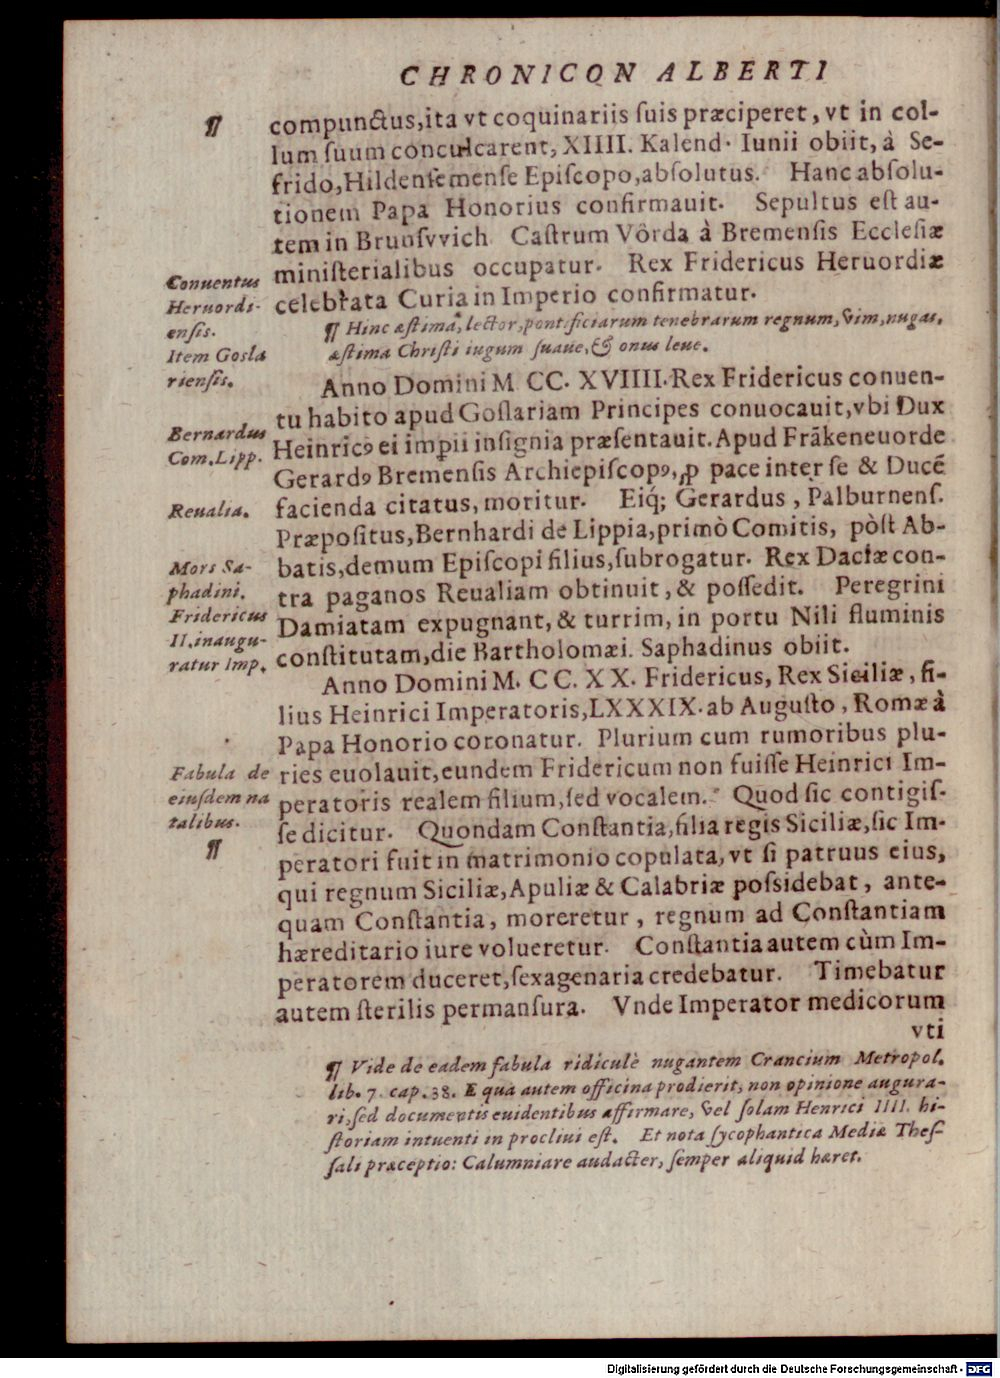 CHRONICON ALBERTI
¶
compunctus,ita vt coquinariis ſuis præciperet, vt in col-
lum ſuum conculcarent, XIIII. Kalend. Iunii obiit, à Se-
frido,Hildenſemenſe Epiſcopo,abſolutus. Hanc abſolu-
tionem Papa Honorius confirmauit. Sepultus eſt au-
tem in Brunſvvich Caſtrum Vôrda à Bremenſis Eccleſiæ
miniſterialibus occupatur. Rex Fridericus Heruordiæ
celebrata Curia in Imperio confirmatur.
Conuentus
Heruordi-
enſis.
Item Goſla
rienſis.
¶ Hinc æſtima, lector, pontificiarum tenebrarum regnum, vim, nugas,
æſtima Chriſti iugum ſuaue, & onus leue.
Anno Domini M CC. XVIIII. Rex Fridericus conuen-
tu habito apud Goſlariam Principes conuocauit,vbi Dux
Heinricꝰ ei imꝑii inſignia præſentauit. Apud Frãkeneuorde
Gerardꝰ Bremenſis Archiepiſcopꝰ, ꝓ pace inter ſe & Ducẽ
facienda citatus, moritur. Eiq́; Gerardus, Palburnenſ.
Præpoſitus,Bernhardi de Lippia,primò Comitis, pòſt Ab-
batis,demum Epiſcopi filius,ſubrogatur. Rex Daciæ con-
tra paganos Reualiam obtinuit, & poſſedit. Peregrini
Damiatam expugnant, & turrim, in portu Nili fluminis
conſtitutam,die Bartholomæi. Saphadinus obiit.
Bernardus
Com. Lipp.
Reualia.
Mors Sa-
phadini.
Fridericus
II. inaugu-
ratur Imp.
Anno Domini M. CC. XX. Fridericus, Rex Siciliæ, fi-
lius Heinrici Imperatoris,LXXXIX. ab Auguſto, Romæ à
Papa Honorio coronatur. Plurium cum rumoribus plu-
ries euolauit,eundem Fridericum non fuiſſe Heinrici Im-
peratoris realem filium,ſed vocalem. Quod ſic contigiſ-
ſe dicitur. Quondam Conſtantia,filia regis Siciliæ,ſic Im-
peratori fuit in matrimonio copulata, vt ſi patruus eius,
qui regnum Siciliæ, Apuliæ & Calabriæ poſsidebat, ante-
quam Conſtantia, moreretur, regnum ad Conſtantiam
hæreditario iure volueretur. Conſtantia autem cùm Im-
peratorem duceret,ſexagenaria credebatur. Timebatur
autem ſterilis permanſura. Vnde Imperator medicorum
vti
Fabula de
eiuſdem na
talibus.
¶
¶ Vide de eadem fabula ridiculè nugantem Crancium Metropol.
lib. 7. cap. 38. E qua autem officina prodierit, non opinione augura-
ri, ſed documentis euidentibus affirmare, vel ſolam Henrici IIII. hi-
ſtoriam intuenti in procliui eſt. Et nota ſycophantica Mediæ Theſ-
ſali præceptio: Calumniare audacter, ſemper aliquid hæret.
Digitalisierung gefördert durch die Deutsche Forschungsgemeinschaft - DFG